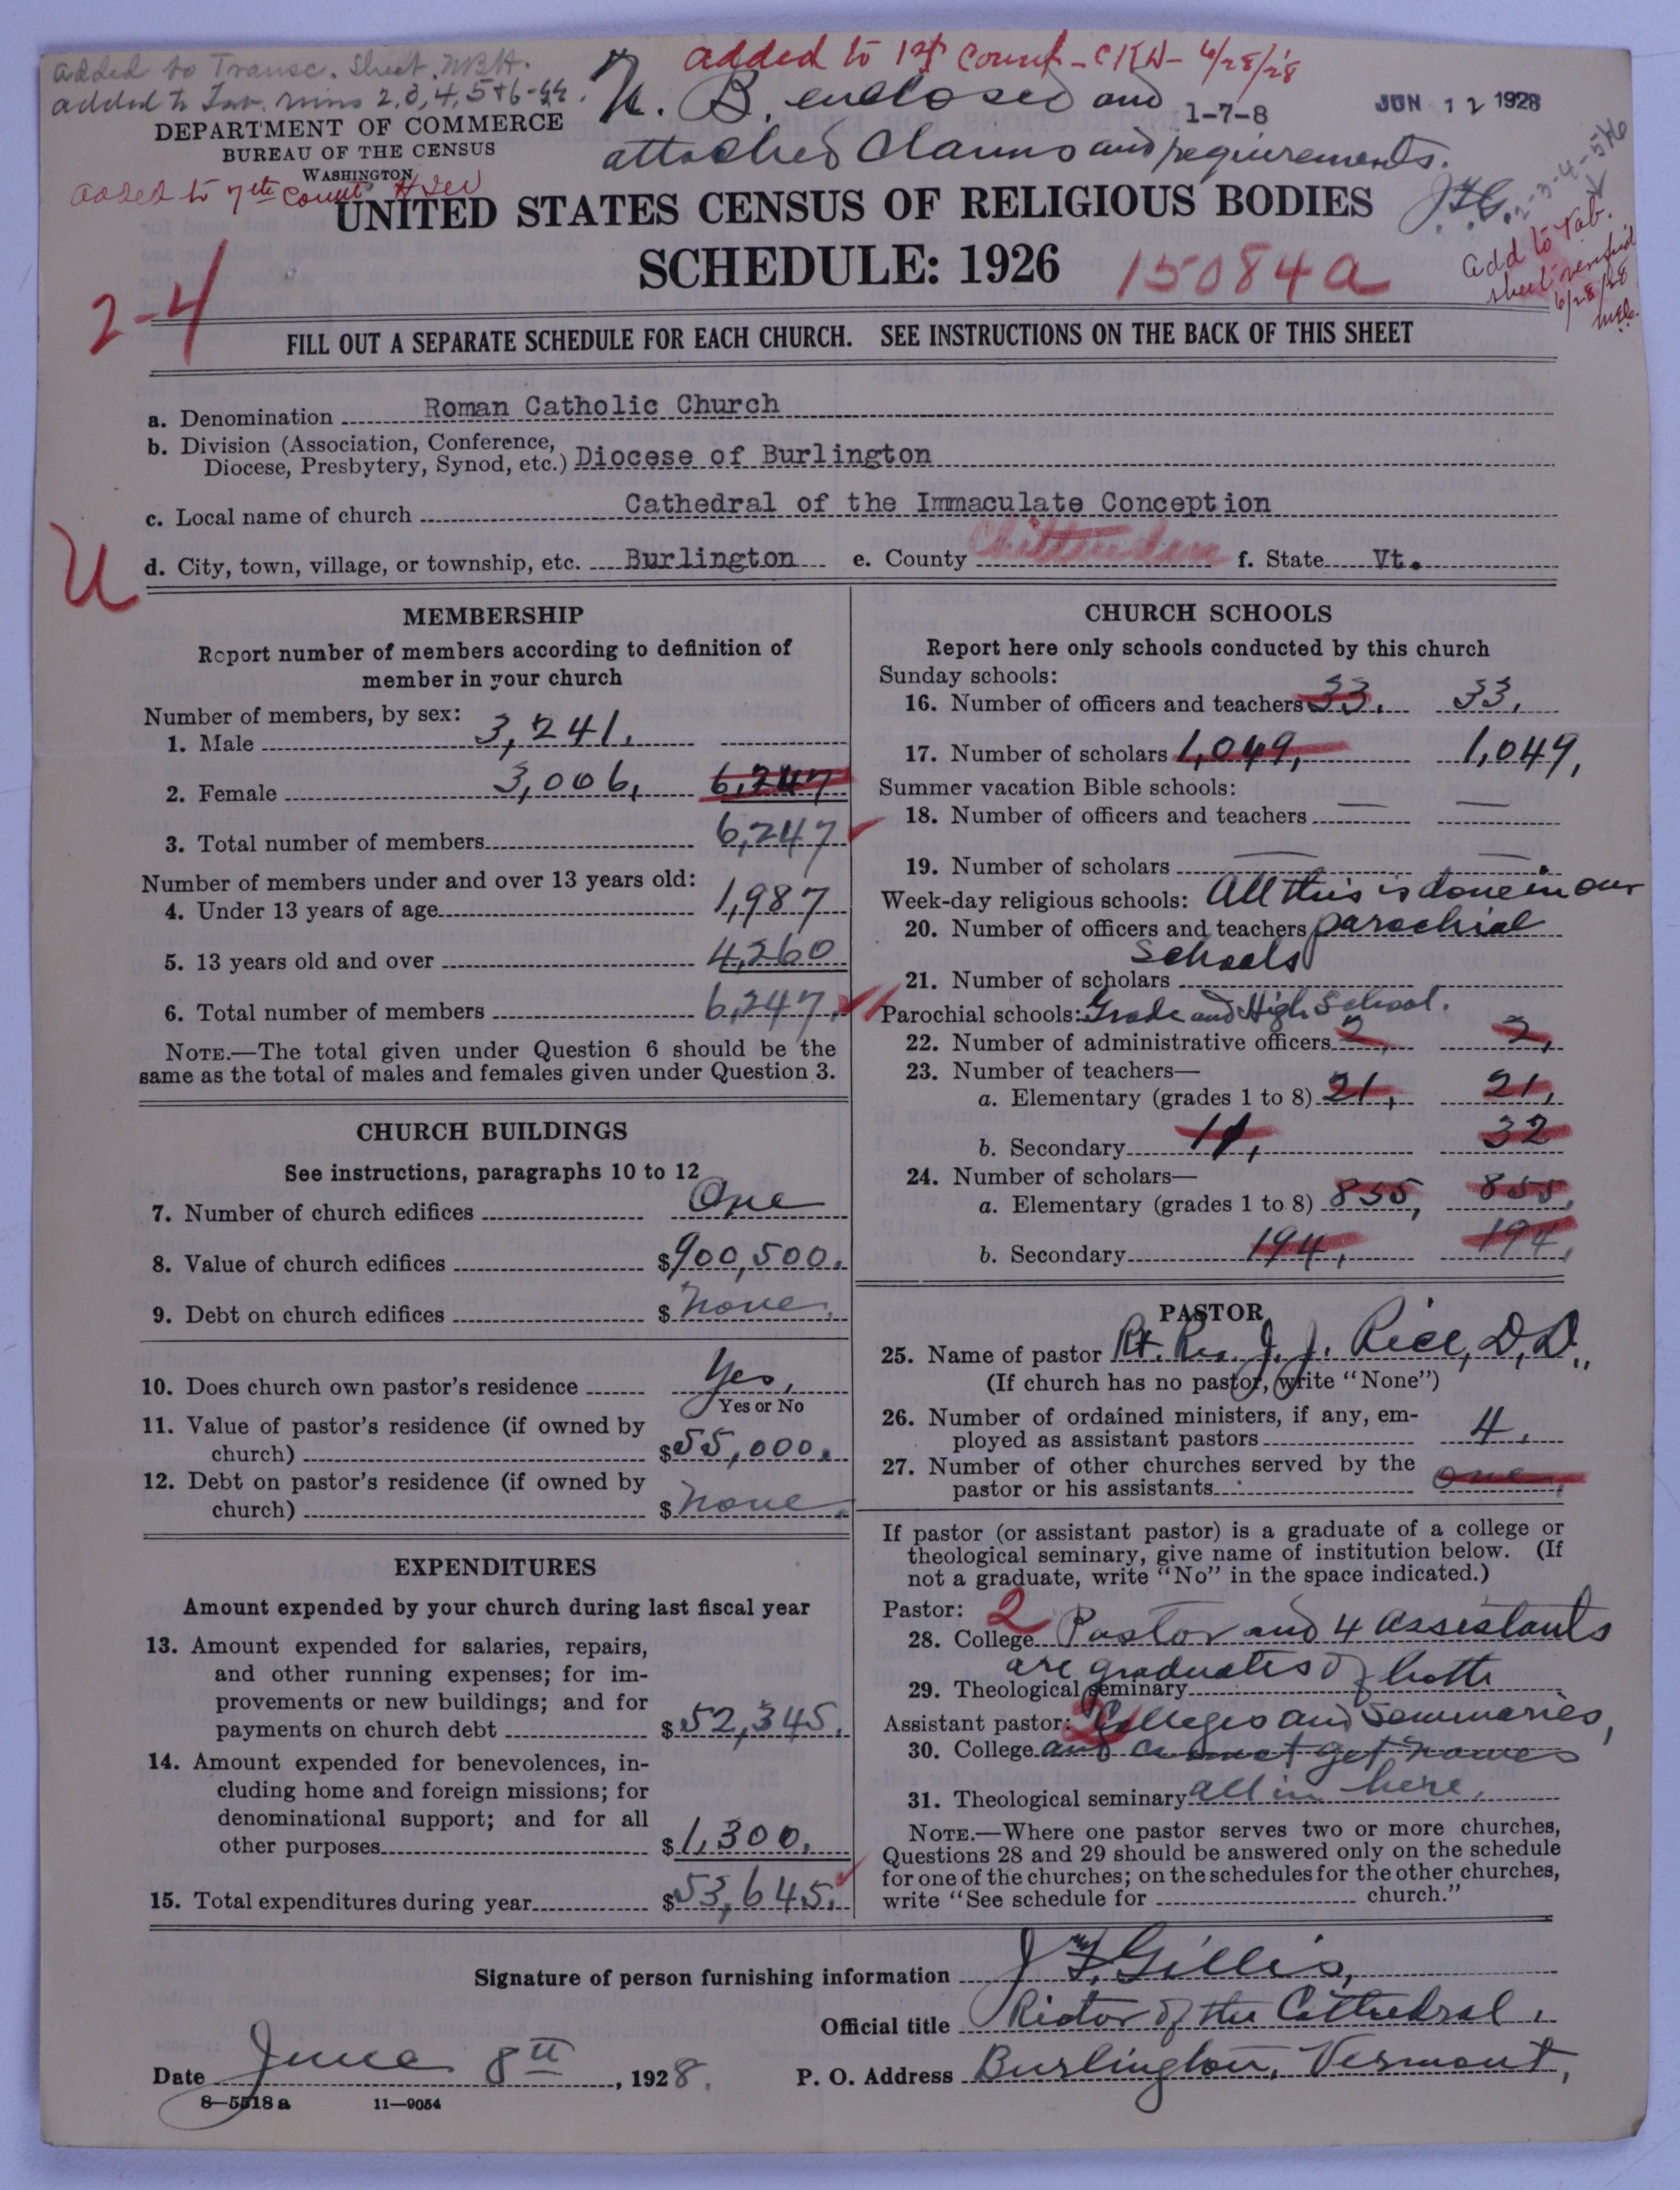 added to Transc. Sheet. MBH.
added to 1st Count - CKN - 6/28/28
added to Tab. runs 2, 3, 4, 5 & 6 -
N. B. enclosed and
1-7-8
JUN 12 1928
DEPARTMENT OF COMMERCE
BUREAU OF THE CENSUS
WASHINGTON
attached Claims and requirements.
J.F.G.
2-3-4-5&6
added to 7th Count
UNITED STATES CENSUS OF RELIGIOUS BODIES
SCHEDULE: 1926
15084a
add to Tab.
sheet verified
6/28/28
2-4
FILL OUT A SEPARATE SCHEDULE FOR EACH CHURCH. SEE INSTRUCTIONS ON THE BACK OF THIS SHEET
a. Denomination Roman Catholic Church
b. Division (Association, Conference,
Diocese, Presbytery, Synod, etc.) Diocese of Burlington
c. Local name of church Cathedral of the Immaculate Conception
U
d. City, town, village, or township, etc. Burlington e. County Chittenden f. State Vt.
MEMBERSHIP
Report number of members according to definition of
member in your church
Number of members, by sex:
1. Male 3,241.
2. Female 3,006, 6,247
3. Total number of members 6,247
Number of members under and over 13 years old:
4. Under 13 years of age 1,987
5. 13 years old and over 4,260
6. Total number of members 6,247.
NOTE.—The total given under Question 6 should be the
same as the total of males and females given under Question 3.
CHURCH BUILDINGS
See instructions, paragraphs 10 to 12
7. Number of church edifices One
8. Value of church edifices $900,500.
9. Debt on church edifices $ None.
10. Does church own pastor's residence Yes,
Yes or No
11. Value of pastor's residence (if owned by
church) $55,000.
12. Debt on pastor's residence (if owned by
church) $ None.
EXPENDITURES
Amount expended by your church during last fiscal year
13. Amount expended for salaries, repairs,
and other running expenses; for im-
provements or new buildings; and for
payments on church debt $52,345.
14. Amount expended for benevolences, in-
cluding home and foreign missions; for
denominational support; and for all
other purposes $1,300.
15. Total expenditures during year $53,645.
CHURCH SCHOOLS
Report here only schools conducted by this church
Sunday schools:
16. Number of officers and teachers 33. 33.
17. Number of scholars 1,049, 1,049,
Summer vacation Bible schools:
18. Number of officers and teachers — —
19. Number of scholars — —
Week-day religious schools: All this is done in our
20. Number of officers and teachers parochial
Schools
21. Number of scholars
Parochial schools: Grade and High School.
22. Number of administrative officers 2, 2,
23. Number of teachers—
a. Elementary (grades 1 to 8) 21, 21,
b. Secondary 11, 32
24. Number of scholars—
a. Elementary (grades 1 to 8) 855, 855,
b. Secondary 194, 194,
PASTOR
25. Name of pastor Rt. Rev. J. J. Rice, D.D.,
(If church has no pastor, write "None")
26. Number of ordained ministers, if any, em-
ployed as assistant pastors 4.
27. Number of other churches served by the
pastor or his assistants one,
If pastor (or assistant pastor) is a graduate of a college or
theological seminary, give name of institution below. (If
not a graduate, write "No" in the space indicated.)
Pastor: 2
28. College Pastor and 4 assistants
are graduates of both
29. Theological seminary
Assistant pastor: 2 Colleges and Semmaries,
30. College and cannot get names
31. Theological seminary all in here.
NOTE.—Where one pastor serves two or more churches,
Questions 28 and 29 should be answered only on the schedule
for one of the churches; on the schedules for the other churches,
write "See schedule for church."
Signature of person furnishing information J. F. Gillis,
Official title Rector of the Cathedral.
Date June 8th, 1928. P. O. Address Burlington, Vermont,
8—5518 a 11—9054